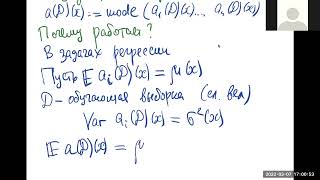 a(D)(x) := mode(a₁(D)(x)... aₙ(D)(x))
Почему работает?
В задачах регрессии
Пусть 𝔼 aᵢ(D)(x) = μ(x)
D - обучающая выборка (сл. вел)
Var aᵢ(D)(x) = σ²(x)
𝔼 a(D)(x) = μ
2022-03-07 17:00:53